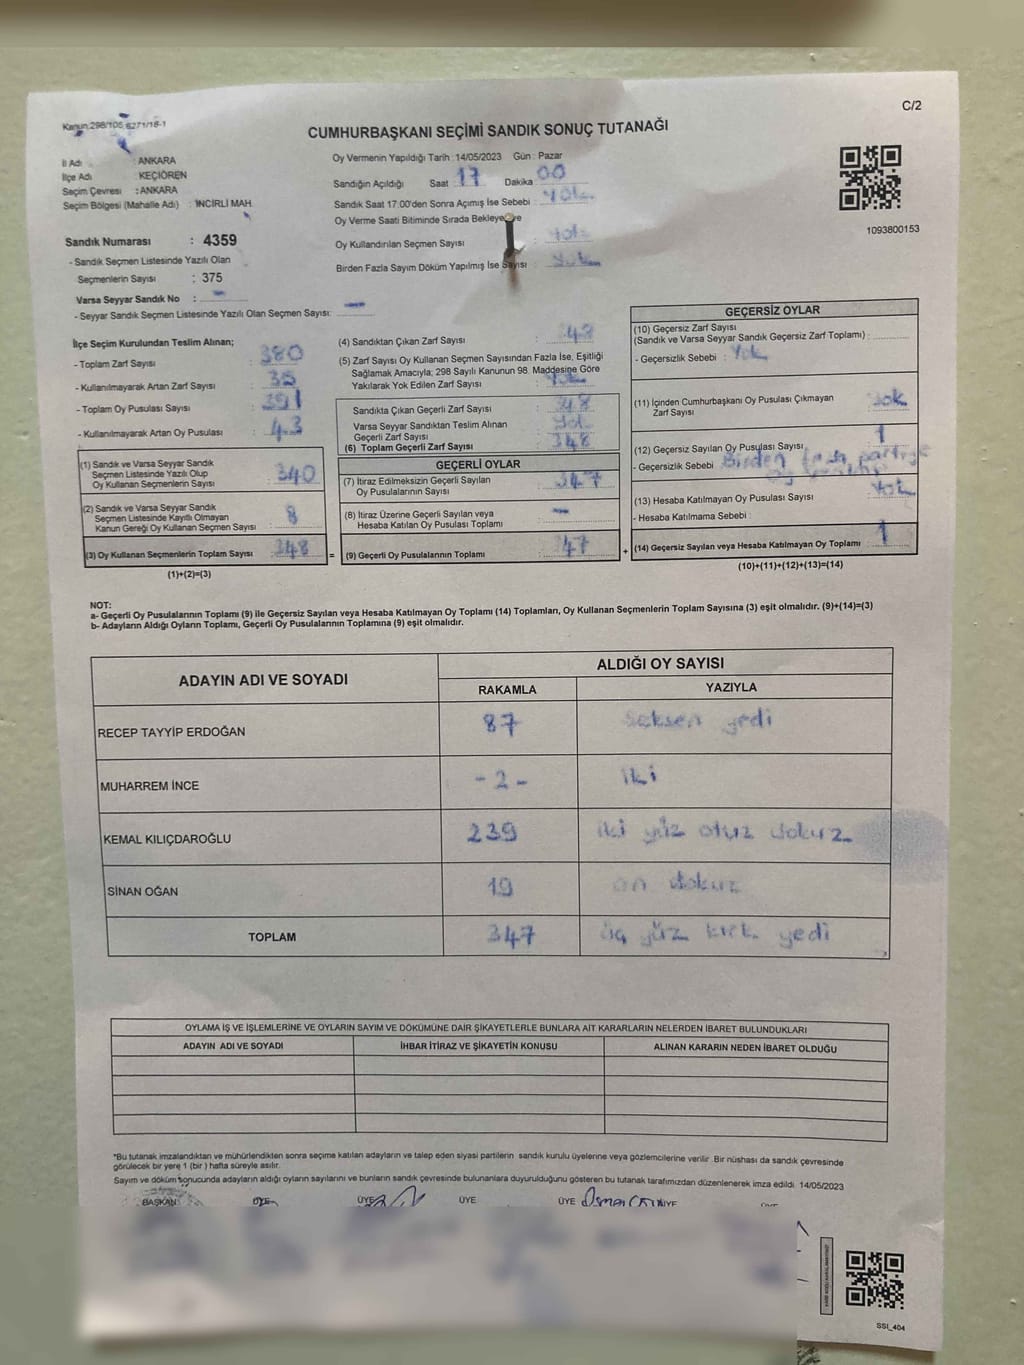 C/2
Kanun:298/105, 6271/18-1
CUMHURBAŞKANI SEÇİMİ SANDIK SONUÇ TUTANAĞI
İl Adı : ANKARA
İlçe Adı : KEÇİÖREN
Seçim Çevresi : ANKARA
Seçim Bölgesi (Mahalle Adı) : İNCİRLİ MAH.
Sandık Numarası : 4359
- Sandık Seçmen Listesinde Yazılı Olan
Seçmenlerin Sayısı : 375
Varsa Seyyar Sandık No : -
- Seyyar Sandık Seçmen Listesinde Yazılı Olan Seçmen Sayısı: -
Oy Vermenin Yapıldığı Tarih :14/05/2023 Gün : Pazar
Sandığın Açıldığı Saat 17 Dakika 00
Sandık Saat 17:00'den Sonra Açımış İse Sebebi : Yok
Oy Verme Saati Bitiminde Sırada Bekleye
Oy Kullandırılan Seçmen Sayısı : Yok
Birden Fazla Sayım Döküm Yapılmış İse Sayısı : Yok
1093800153
İlçe Seçim Kurulundan Teslim Alınan;
- Toplam Zarf Sayısı : 380
- Kullanılmayarak Artan Zarf Sayısı :
- Toplam Oy Pusulası Sayısı : 391
- Kullanılmayarak Artan Oy Pusulası : 43
(1) Sandık ve Varsa Seyyar Sandık
Seçmen Listesinde Yazılı Olup
Oy Kullanan Seçmenlerin Sayısı : 340
(2) Sandık ve Varsa Seyyar Sandık
Seçmen Listesinde Kayıtlı Olmayan
Kanun Gereği Oy Kullanan Seçmen Sayısı : 8
(3) Oy Kullanan Seçmenlerin Toplam Sayısı : 348
(1)+(2)=(3)
(4) Sandıktan Çıkan Zarf Sayısı :
(5) Zarf Sayısı Oy Kullanan Seçmen Sayısından Fazla İse, Eşitliği
Sağlamak Amacıyla; 298 Sayılı Kanunun 98. Maddesine Göre
Yakılarak Yok Edilen Zarf Sayısı : Yok
Sandıkta Çıkan Geçerli Zarf Sayısı : 348
Varsa Seyyar Sandıktan Teslim Alınan
Geçerli Zarf Sayısı : Yok
(6) Toplam Geçerli Zarf Sayısı : 348
GEÇERLİ OYLAR
(7) İtiraz Edilmeksizin Geçerli Sayılan
Oy Pusulalarının Sayısı : 347
(8) İtiraz Üzerine Geçerli Sayılan veya
Hesaba Katılan Oy Pusulası Toplamı : -
= (9) Geçerli Oy Pusulalarının Toplamı : 347
GEÇERSİZ OYLAR
(10) Geçersiz Zarf Sayısı
(Sandık ve Varsa Seyyar Sandık Geçersiz Zarf Toplamı) :
- Geçersizlik Sebebi : Yok
(11) İçinden Cumhurbaşkanı Oy Pusulası Çıkmayan
Zarf Sayısı : Yok
(12) Geçersiz Sayılan Oy Pusulası Sayısı : 1
- Geçersizlik Sebebi : Birden fazla partiye
(13) Hesaba Katılmayan Oy Pusulası Sayısı : Yok
- Hesaba Katılmama Sebebi :
+ (14) Geçersiz Sayılan veya Hesaba Katılmayan Oy Toplamı : 1
(10)+(11)+(12)+(13)=(14)
NOT:
a- Geçerli Oy Pusulalarının Toplamı (9) ile Geçersiz Sayılan veya Hesaba Katılmayan Oy Toplamı (14) Toplamları, Oy Kullanan Seçmenlerin Toplam Sayısına (3) eşit olmalıdır. (9)+(14)=(3)
b- Adayların Aldığı Oyların Toplamı, Geçerli Oy Pusulalarının Toplamına (9) eşit olmalıdır.
ADAYIN ADI VE SOYADI ALDIĞI OY SAYISI
RAKAMLA YAZIYLA
RECEP TAYYİP ERDOĞAN 87 seksen yedi
MUHARREM İNCE - 2 - iki
KEMAL KILIÇDAROĞLU 239 iki yüz otuz dokuz
SİNAN OĞAN 19 on dokuz
TOPLAM 347 üç yüz kırk yedi
OYLAMA İŞ VE İŞLEMLERİNE VE OYLARIN SAYIM VE DÖKÜMÜNE DAİR ŞİKAYETLERLE BUNLARA AİT KARARLARIN NELERDEN İBARET BULUNDUKLARI
ADAYIN ADI VE SOYADI İHBAR İTİRAZ VE ŞİKAYETİN KONUSU ALINAN KARARIN NEDEN İBARET OLDUĞU
*Bu tutanak imzalandıktan ve mühürlendikten sonra seçime katılan adayların ve talep eden siyasi partilerin sandık kurulu üyelerine veya gözlemcilerine verilir. Bir nüshası da sandık çevresinde
görülecek bir yere 1 (bir) hafta süreyle asılır.
Sayım ve döküm sonucunda adayların aldığı oyların sayılarını ve bunların sandık çevresinde bulunanlara duyurulduğunu gösteren bu tutanak tarafımızdan düzenlenerek imza edildi. 14/05/2023
BAŞKAN ÜYE ÜYE ÜYE ÜYE ÜYE
SSI_404